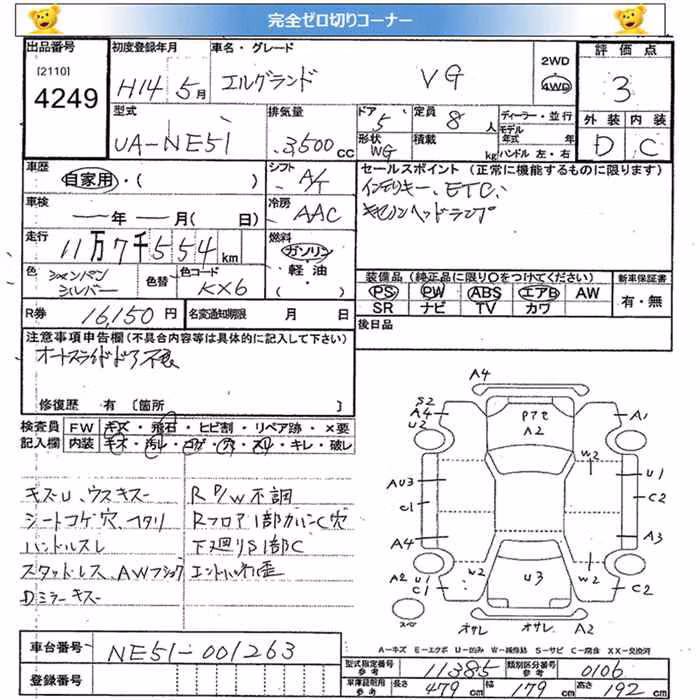 完全ゼロ切りコーナー
出品番号
[2110]
4249
初度登録年月
H14 5月
車名・グレード
エルグランド VG
2WD
4WD
評価点
3
外装 内装
D C
型式
UA-NE51
排気量
3500cc
ドア
5
形状
WG
定員
8人
積載
kg
ディーラー・並行
モデル年式 年式
ハンドル 左・右
車歴
自家用・( )
シフト
A/T
セールスポイント (正常に機能するものに限ります)
インテリキー、ETC、
キセノンヘッドランプ
車検
年 月( 日)
冷房
AAC
走行
11万7千554km
燃料
ガソリン
軽油
( )
色
シャンパンシルバー
色替
色コード
KX6
装備品 (純正品に限り○をつけてください)
PS PW ABS エアB AW
SR ナビ TV カワ
新車保証書
有・無
R券
16,150円
名変通知期限 月 日
後日品
注意事項申告欄 (不具合内容等は具体的に記入して下さい)
オートスライドドア不良
修復歴 有 [箇所 ]
検査員記入欄
FW キズ・飛石・ヒビ割・リペア跡・×要
内装 キズ・汚レ・コゲ・穴・スレ・キレ・破レ
キズU、ウスキズー
シートコゲ穴、ヘタリ
ハンドルスレ
スタッドレス、AWフショク
Dミラーキズー
R P/W不調
Rフロア1部カバーC穴
下廻りS1部C
A4
S2
A4
U2
A1
A2
W2
AU3
C1
U1
C2
A4
A3
A2 U1
C1
W2
U3
W2
C2
スペ
オサレ オサレ A2
A-キズ E-エクボ U-凹み W-補修跡 S-サビ C-腐食 XX-交換済
車台番号
NE51-001263
シリアル番号
型式指定番号
参考
11385
類別区分番号
参考
0106
車庫証明用
参考
長さ
479cm
幅
179cm
高さ
192cm